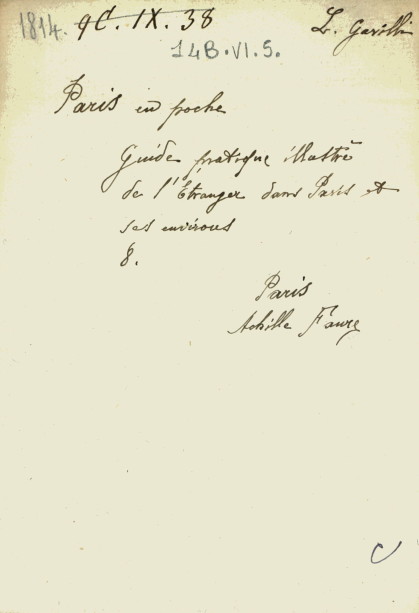 1814. 9C. IX. 38
14B.VI.5.
Paris en poche
Guide pratique illustré
de l'Étranger dans Paris et
ses environs
8.
Paris
Achille Faure
C